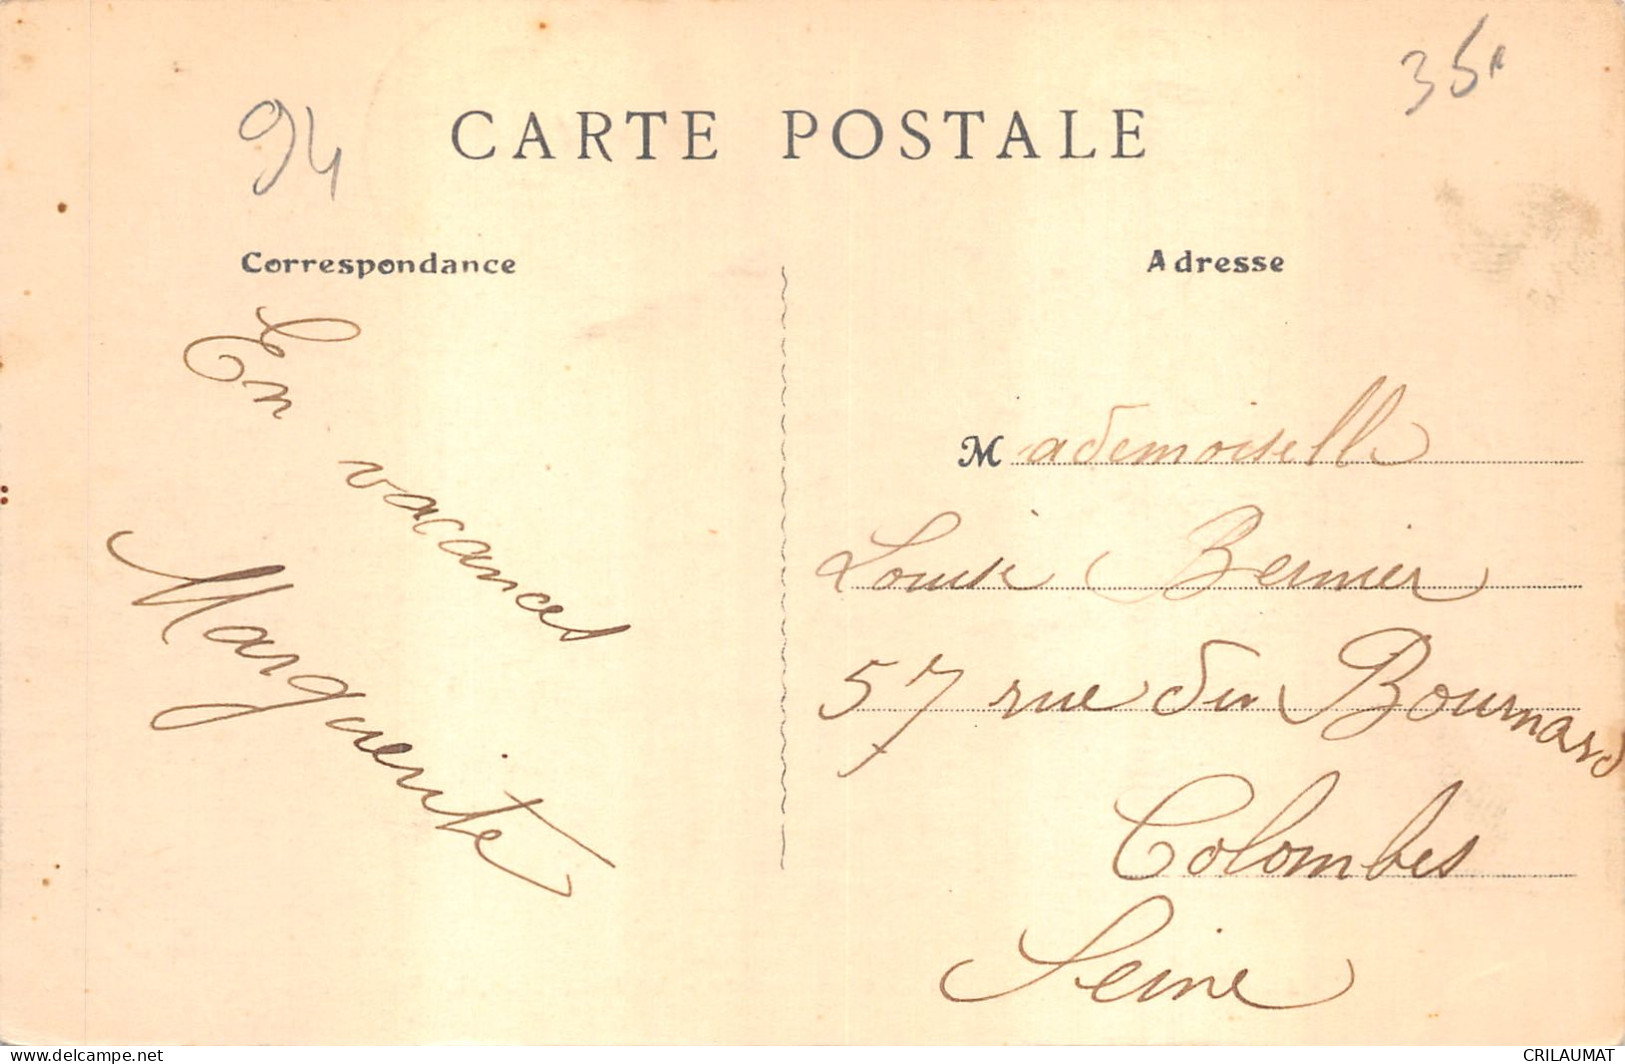 94
35
CARTE POSTALE
Correspondance
Adresse
En vacances
Marguerite
Mademoiselle
Louise Bernier
57 rue du Bournard
Colombes
Seine
www.delcampe.net
CRILAUMAT